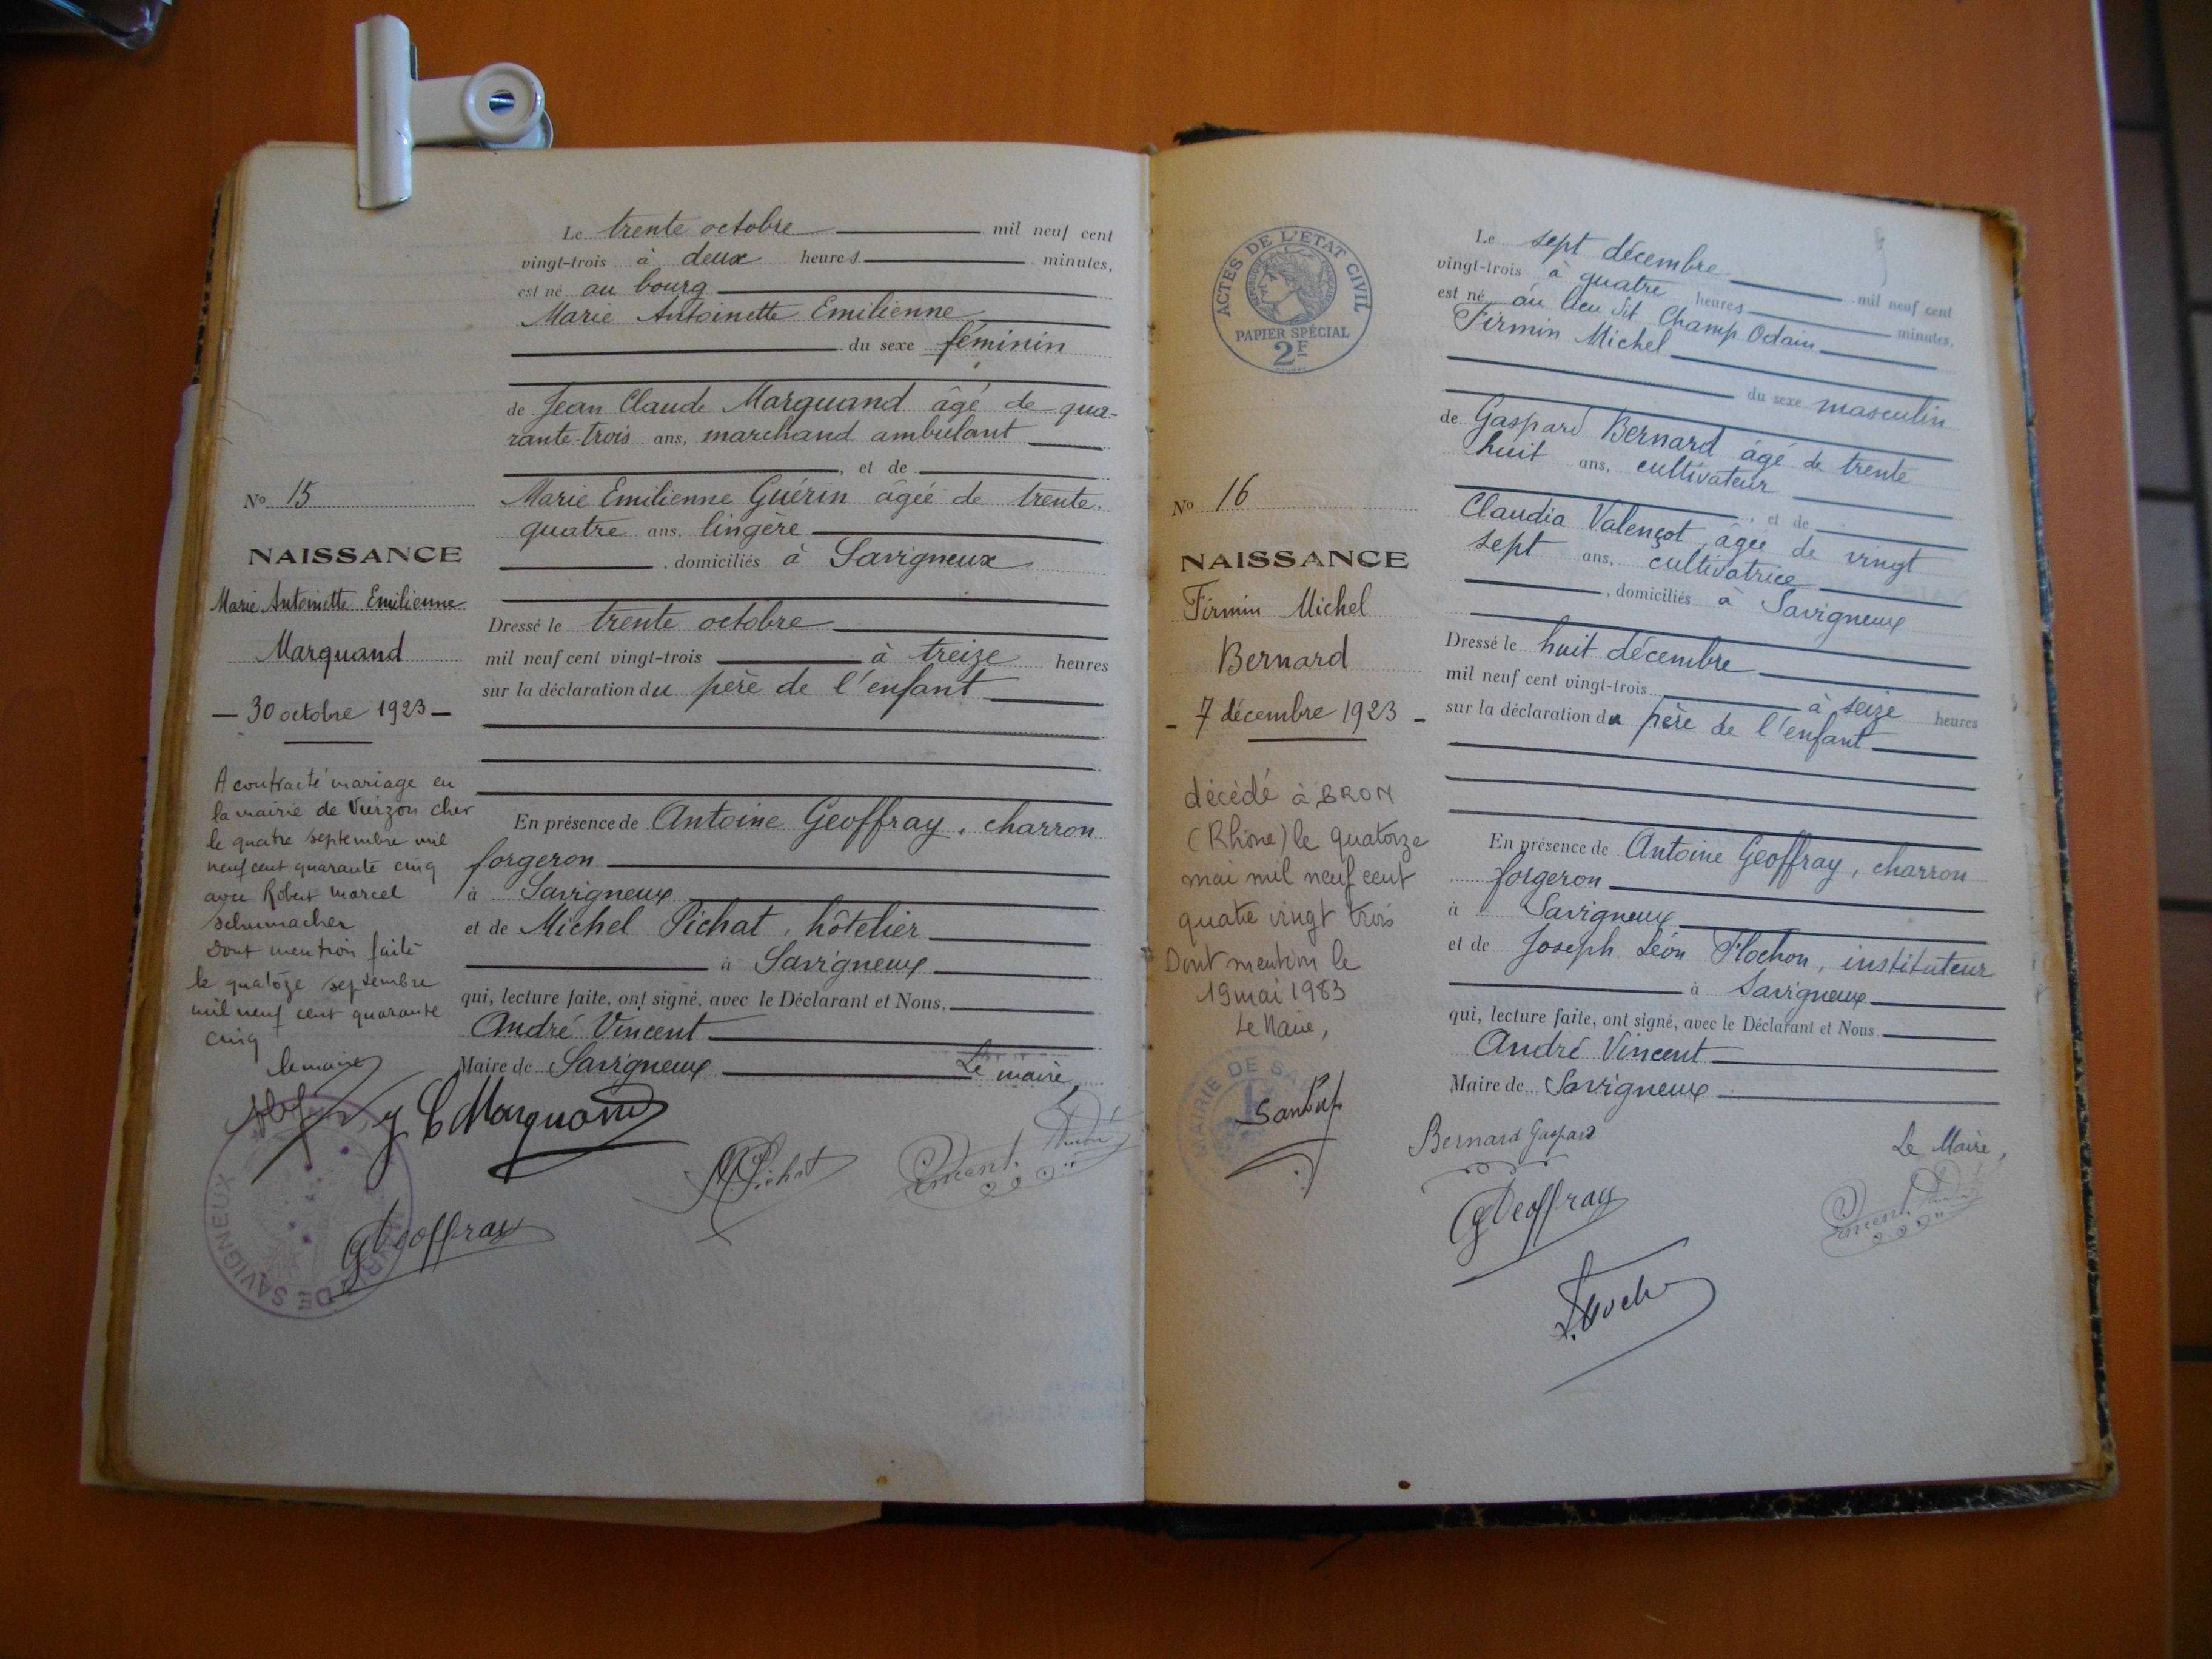 Le trente octobre mil neuf cent
vingt-trois à deux heures minutes,
est né au bourg
Marie Antoinette Emilienne
du sexe féminin
de Jean Claude Marquand âgé de qua-
rante-trois ans, marchand ambulant
, et de
Marie Emilienne Guérin âgée de trente
quatre ans, lingère
, domiciliés à Savigneux
Dressé le trente octobre
mil neuf cent vingt-trois à treize heures
sur la déclaration du père de l'enfant
En présence de Antoine Geoffray, charron
forgeron
à Savigneux
et de Michel Pichat, hôtelier
à Savigneux
qui, lecture faite, ont signé, avec le Déclarant et Nous,
André Vincent
Maire de Savigneux Le maire,
No 15
NAISSANCE
Marie Antoinette Emilienne
Marquand
— 30 octobre 1923 —
A contracté mariage en
la mairie de Vierzon cher
le quatre septembre mil
neuf cent quarante cinq
avec Robert Marcel
Schumacher
dont mention faite
le quatoze septembre
mil neuf cent quarante
cinq
le maire
J C Marquand
M Pichat
Vincent André
Geoffray
MAIRIE DE SAVIGNEUX
ACTES DE L'ETAT CIVIL
PAPIER SPÉCIAL
2F
No 16
NAISSANCE
Firmin Michel
Bernard
- 7 décembre 1923 -
décédé à BRON
(Rhône) le quatorze
mai mil neuf cent
quatre vingt trois
Dont mention le
19 mai 1983
Le Maire,
MAIRIE DE SA
Le sept décembre mil neuf cent
vingt-trois à quatre heures minutes,
est né au lieu dit Champ Odain
Firmin Michel
du sexe masculin
de Gaspard Bernard âgé de trente
huit ans, cultivateur
, et de
Claudia Valençot, âgée de vingt
sept ans, cultivatrice
, domiciliés à Savigneux
Dressé le huit décembre
mil neuf cent vingt-trois à seize heures
sur la déclaration du père de l'enfant
En présence de Antoine Geoffray, charron
forgeron
à Savigneux
et de Joseph Léon Flochon, instituteur
à Savigneux
qui, lecture faite, ont signé, avec le Déclarant et Nous
André Vincent
Maire de Savigneux
Bernard Gaspard
Le Maire,
Geoffray
Vincent André